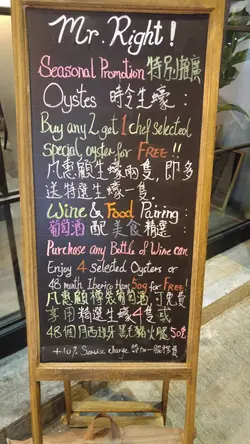 Mr. Right!
Seasonal Promotion 特別推廣
Oystes 時令生蠔:
Buy any 2, get 1 chef selected
special oyster for FREE!!
凡惠顧生蠔兩隻，即多
送特選生蠔一隻
Wine & Food Pairing
葡萄酒 配 美食 精選:
Purchase any Bottle of Wine can
Enjoy 4 selected Oysters or
48 month Iberico Ham 50g for Free!
凡惠顧樽裝葡萄酒,可免費
享用精選生蠔4隻或
48個月西班牙黑毛豬火腿50克
+10% Service charge 設加一服務費